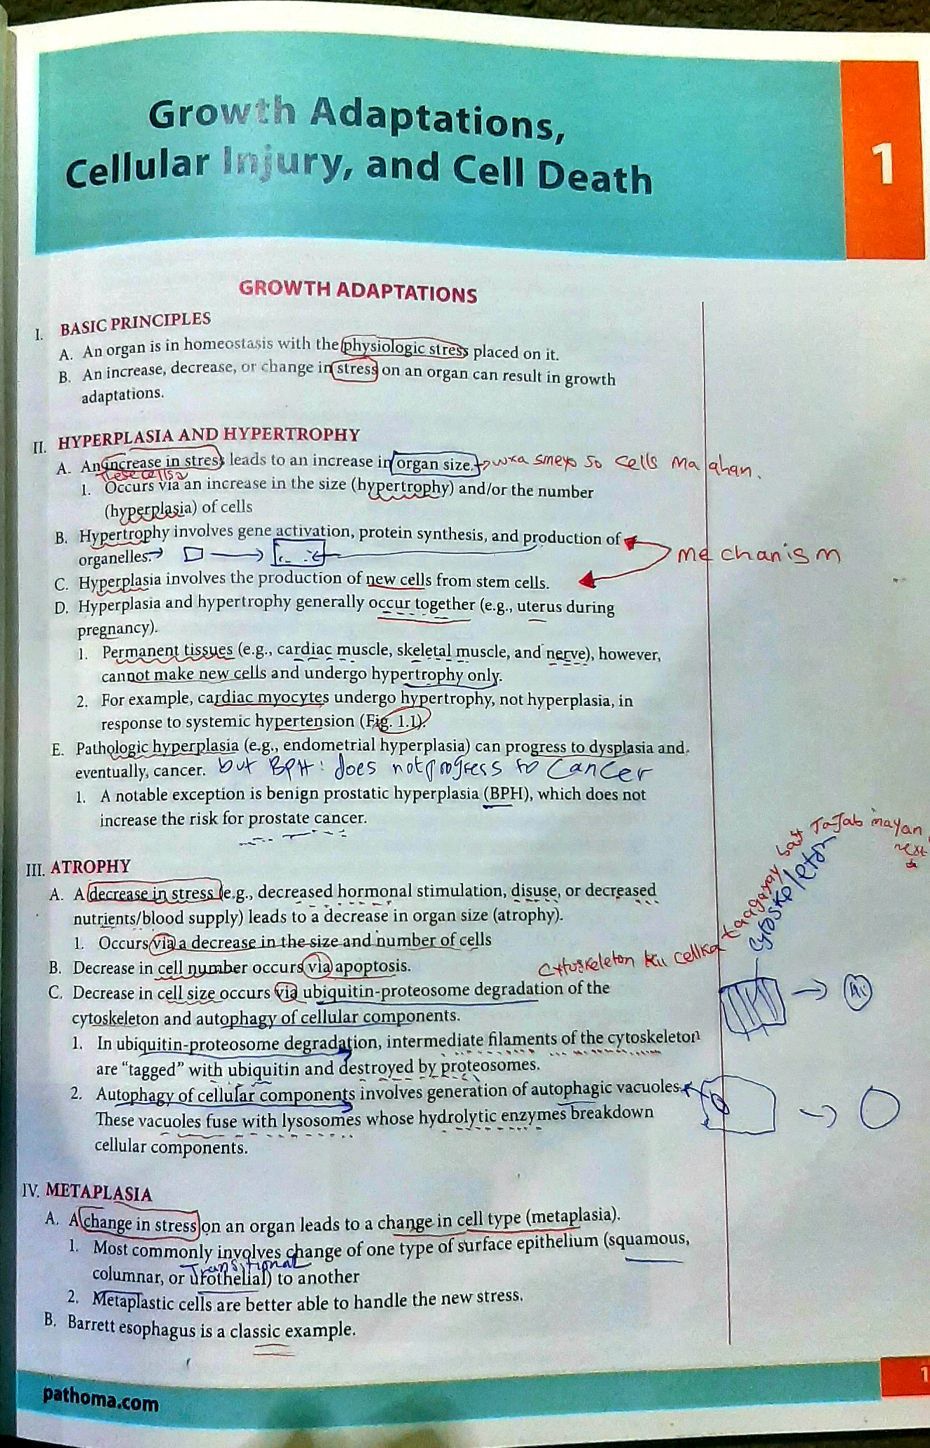 Growth Adaptations,
Cellular Injury, and Cell Death
1
GROWTH ADAPTATIONS
I. BASIC PRINCIPLES
A. An organ is in homeostasis with the physiologic stress placed on it.
B. An increase, decrease, or change in stress on an organ can result in growth
adaptations.
II. HYPERPLASIA AND HYPERTROPHY
A. An increase in stress leads to an increase in organ size. wxa smeys so cells ma ahan.
These cells
1. Occurs via an increase in the size (hypertrophy) and/or the number
(hyperplasia) of cells
B. Hypertrophy involves gene activation, protein synthesis, and production of
organelles.
mechanism
C. Hyperplasia involves the production of new cells from stem cells.
D. Hyperplasia and hypertrophy generally occur together (e.g., uterus during
pregnancy).
1. Permanent tissues (e.g., cardiac muscle, skeletal muscle, and nerve), however,
cannot make new cells and undergo hypertrophy only.
2. For example, cardiac myocytes undergo hypertrophy, not hyperplasia, in
response to systemic hypertension (Fig. 1.1).
E. Pathologic hyperplasia (e.g., endometrial hyperplasia) can progress to dysplasia and,
eventually, cancer. but BPH: does not progress to cancer
1. A notable exception is benign prostatic hyperplasia (BPH), which does not
increase the risk for prostate cancer.
III. ATROPHY
A. A decrease in stress (e.g., decreased hormonal stimulation, disuse, or decreased
nutrients/blood supply) leads to a decrease in organ size (atrophy).
1. Occurs via a decrease in the size and number of cells
B. Decrease in cell number occurs via apoptosis.
Cytoskeleton
C. Decrease in cell size occurs via ubiquitin-proteosome degradation of the
cytoskeleton and autophagy of cellular components.
1. In ubiquitin-proteosome degradation, intermediate filaments of the cytoskeleton
are "tagged" with ubiquitin and destroyed by proteosomes.
2. Autophagy of cellular components involves generation of autophagic vacuoles.
These vacuoles fuse with lysosomes whose hydrolytic enzymes breakdown
cellular components.
cytoskeleton
IV. METAPLASIA
A. A change in stress on an organ leads to a change in cell type (metaplasia).
1. Most commonly involves change of one type of surface epithelium (squamous,
Transitional
columnar, or urothelial) to another
2. Metaplastic cells are better able to handle the new stress.
B. Barrett esophagus is a classic example.
pathoma.com
1